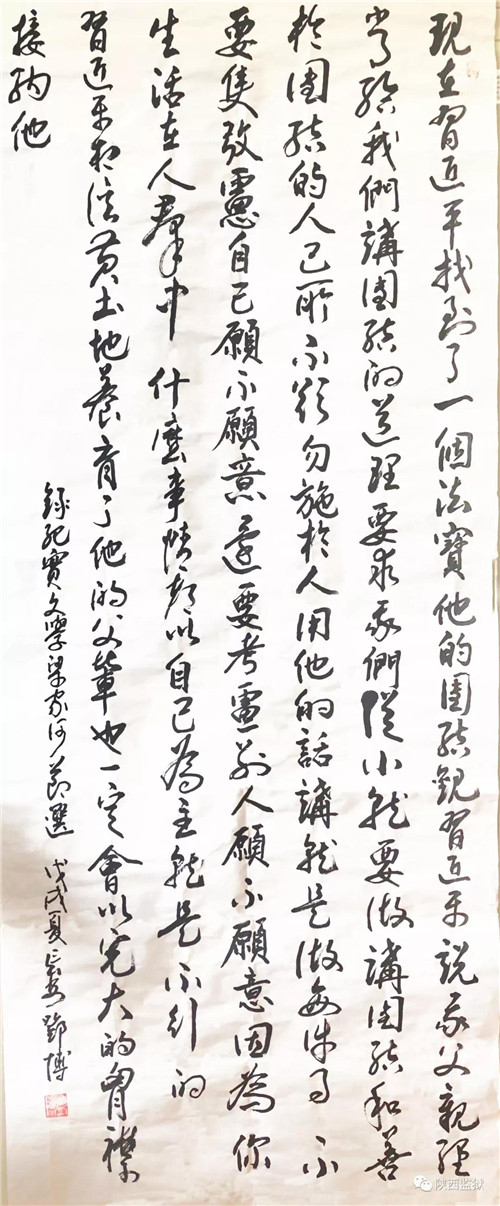 現在習近平找到了一個法寶他的團結觀習近平説我父親經
常給我們講團結的道理要求我們從小就要做講團結和善
於團結的人己所不欲勿施於人用他的話講就是做每件事不
要隻考慮自己願不願意還要考慮别人願不願意因為你
生活在人群中什麼事情都以自己為主就是不行的
習近平相信黄土地養育了他的父輩也一定會以寬大的胸襟
接納他
録紀實文學梁家河節選
戊戌夏長安鄧博
陕西监狱